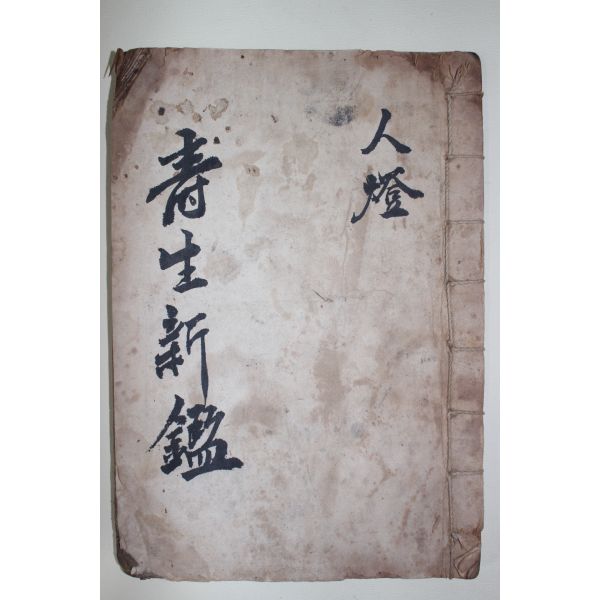 人燈
壽生新鑑